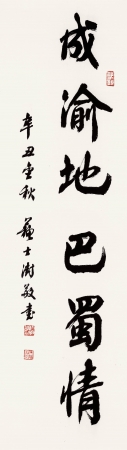 成渝地巴蜀情
辛丑金秋 苏士澍敬书